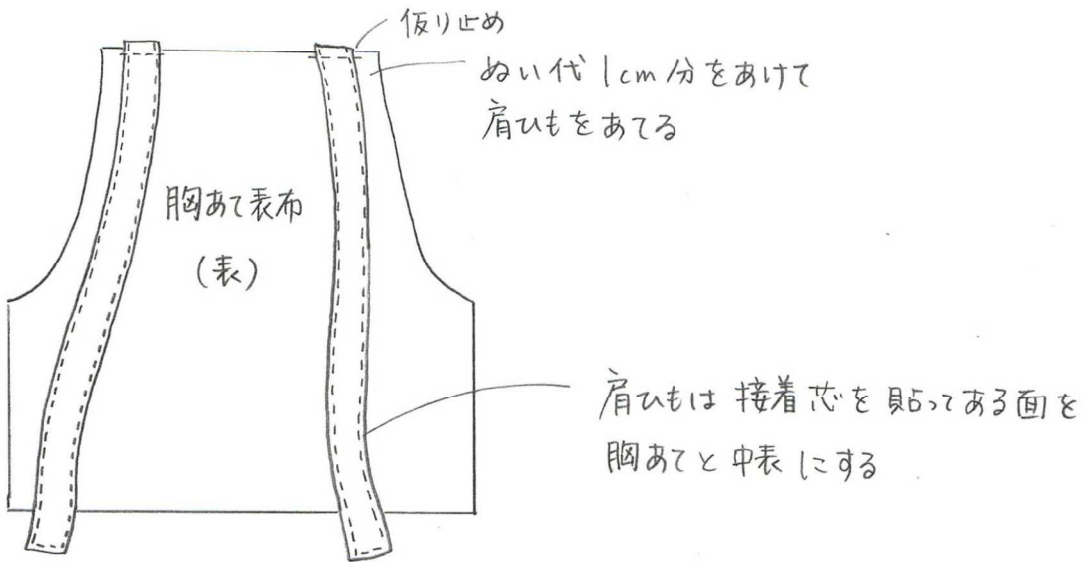 仮り止め
ぬい代1cm分をあけて
肩ひもをあてる
胸あて表布
(表)
肩ひもは接着芯を貼ってある面を
胸あてと中表にする